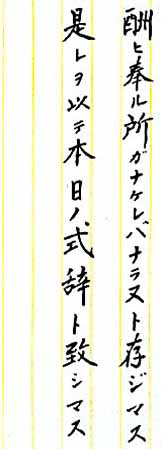 酬ヒ奉ル所ガナケレバナラヌト存ジマス
是レヲ以テ本日ノ式辞ト致シマス